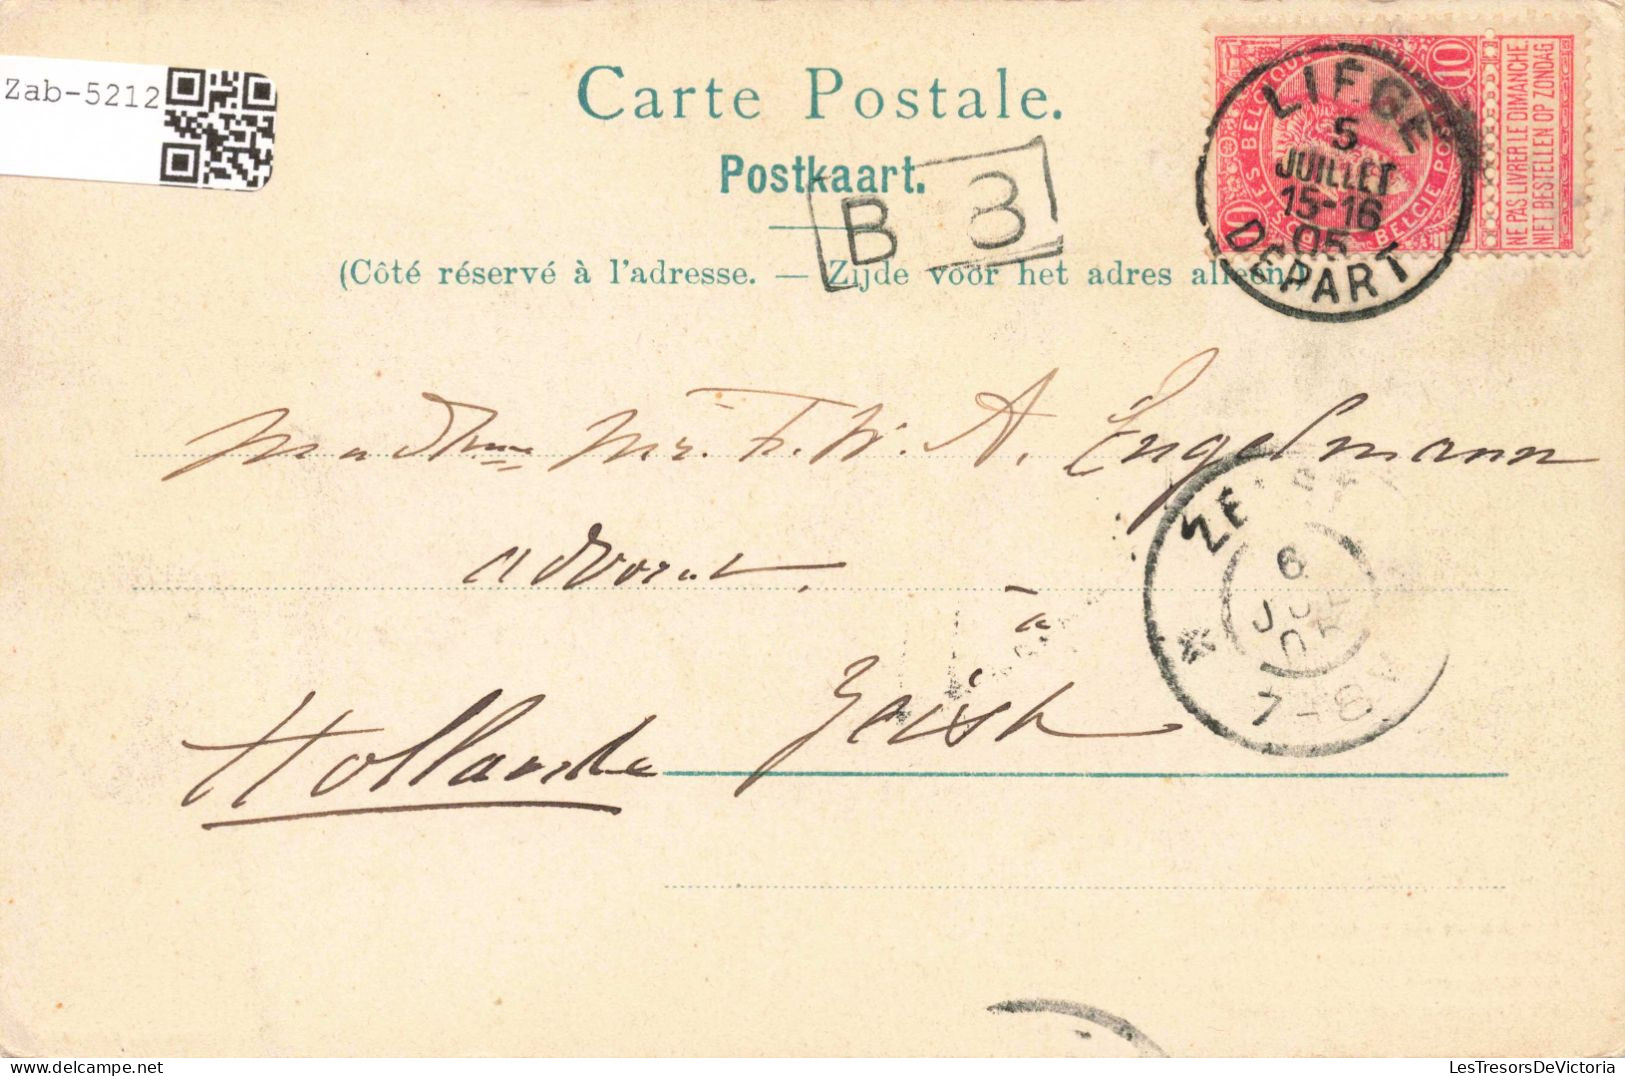 Zab-5212
Carte Postale.
Postkaart.
B 3
(Côté réservé à l'adresse. — Zijde voor het adres alleen.)
10
BELGIQUE POSTES
POST BELGIE
10
NE PAS LIVRER LE DIMANCHE.
NIET BESTELLEN OP ZONDAG
LIEGE
5
JUILLET
15-16
05
DEPART
Madame Mr. F. W. A. Engelmann
advocat.
à
Zeist
Hollande
ZEIST
6
JUL
05
7-8V
LesTresorsDeVictoria